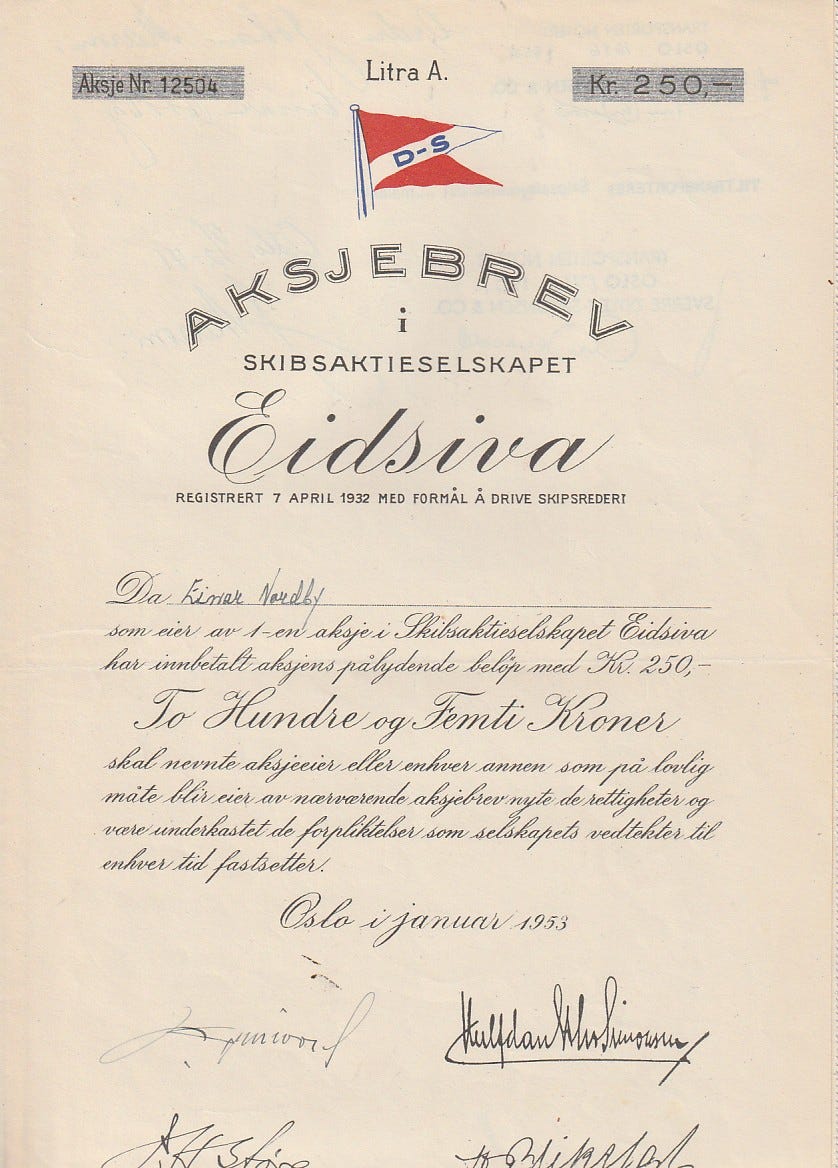 Litra A.
Aksje Nr. 12504
Kr. 250,—
D-S
AKSJEBREV
i
SKIBSAKTIESELSKAPET
Eidsiva
REGISTRERT 7 APRIL 1932 MED FORMÅL Å DRIVE SKIPSREDERI
Da Einar Nordby
som eier av 1-en aksje i Skibsaktieselskapet Eidsiva
har innbetalt aksjens pålydende beløp med Kr. 250,-
To Hundre og Femti Kroner
skal nevnte aksjeeier eller enhver annen som på lovlig
måte blir eier av nærværende aksjebrev nyte de rettigheter og
være underkastet de forpliktelser som selskapets vedtekter til
enhver tid fastsetter.
Oslo i januar 1953